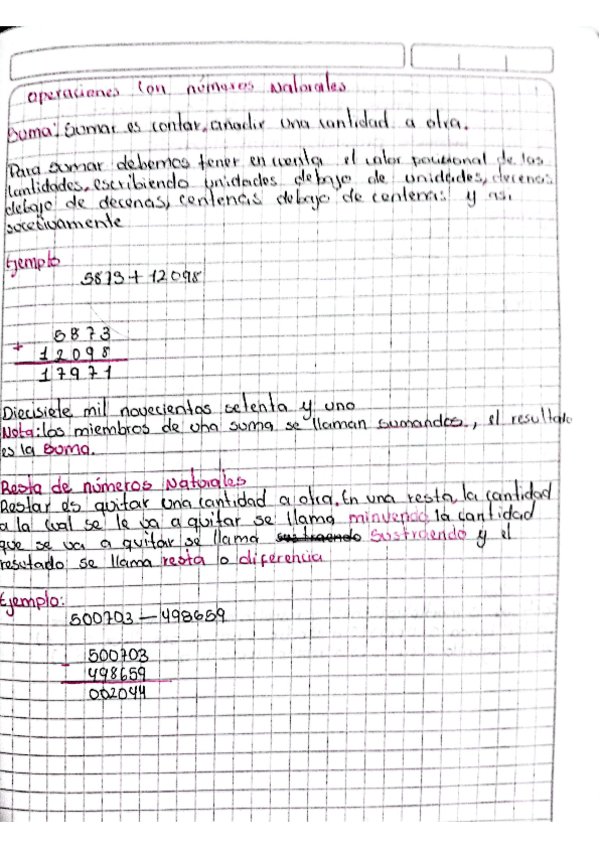 operaciones con números Naturales
Suma: Sumar es contar, añadir una cantidad a otra.
Para sumar debemos tener en cuenta el valor posicional de las
cantidades, escribiendo unidades debajo de unidades, decenas
debajo de decenas, centenas debajo de centenas y asi
sucetivamente
Ejemplo
5873 + 12098
+ 5873
12098
17971
Diecisiete mil novecientos setenta y uno
Nota: los miembros de una suma se llaman sumandos, el resultado
es la suma.
Resta de números Naturales
Restar es quitar una cantidad a otra. En una resta, la cantidad
a la cual se le va a quitar se llama minuendo, la cantidad
que se va a quitar se llama sustraendo sustraendo y el
resutado se llama resta o diferencia
Ejemplo:
500703 — 498659
- 500703
498659
002044